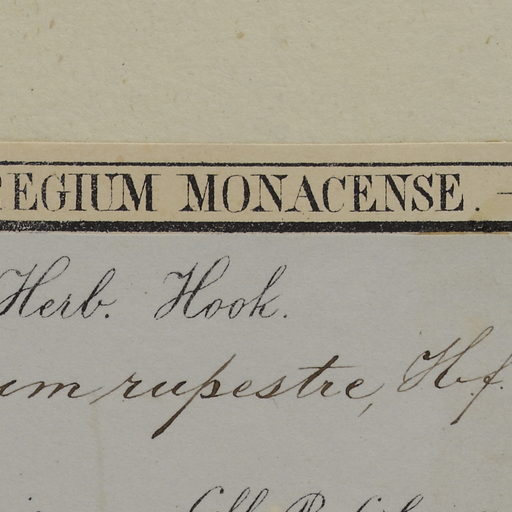 REGIUM MONACENSE. —
Herb. Hook.
um rupestre, H.f.
Coll.